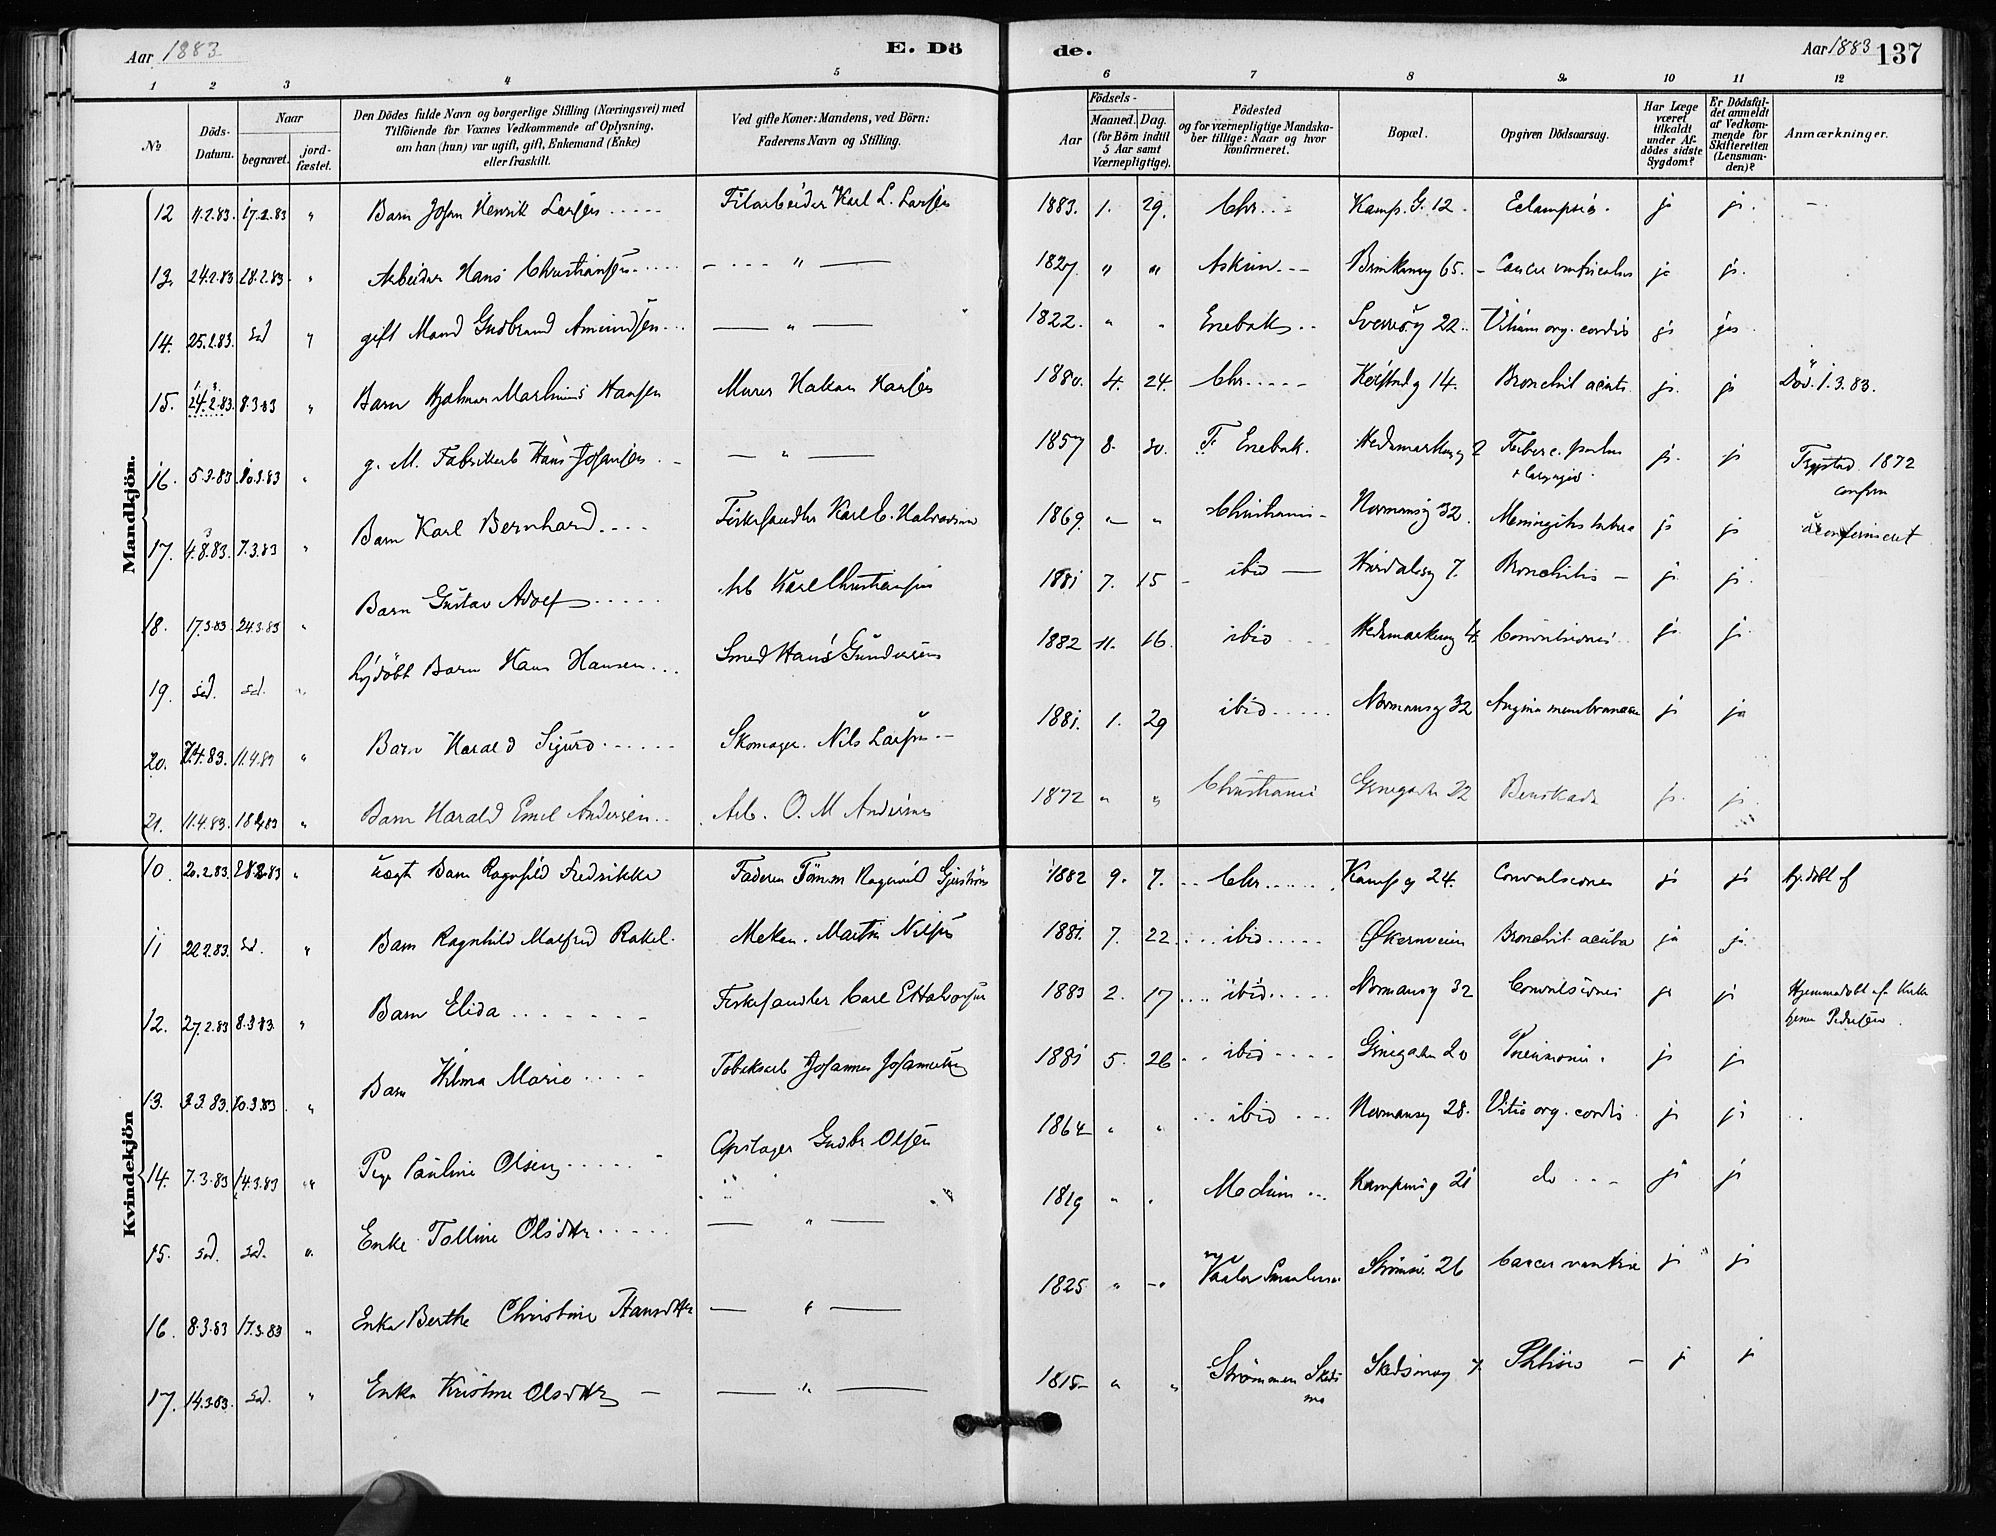 Aar 1883
E. Dö
de.
Aar 1883 137
1 2 3 4 5 6 7 8 9. 10 11 12
№
Döds-Datum.
Naar
begravet.
jord-fæstet.
Den Dödes fulde Navn og borgerlige Stilling (Næringsvei) med
Tilföiende for Voxnes Vedkommende af Oplysning,
om han (hun) var ugift, gift, Enkemand (Enke)
eller fraskilt.
Ved gifte Koner: Mandens, ved Börn:
Faderens Navn og Stilling.
Födsels-
Aar
Maaned. Dag.
(for Börn indtil
5 Aar samt
Værnepligtige).
Födested
og for værnepligtige Mandska-
ber tillige: Naar og hvor
konfirmeret.
Bopæl.
Opgiven Dödsaarsag.
Har Læge
været
tilkaldt
under Af-
dödes sidste
Sygdom?
Er Dödsfal-
det anmeldt
af Vedkom-
mende for
Skifteretten
(Lensman-
den)?
Anmærkninger.
Mandkjön.
12 11.2.83. 17.2.83 " Barn Johan Henrik Larsen Karl L. Larsen 1883. 1. 29. Chr. Kamp. G. 12. Eclampsia. ja ja. -
13. 24.2.83 28.2.83. " Arbeider Hans Christiansen - " - 1827. " " Askim 65. Cancer ventriculus ja ja.
14. 25.2.83. sd " gift Mand Gudbrand Amundsen - " - 1822. " " Enebak Sverresg 22. Vitium org. cordis ja ja
15. 24.2.83. 8.3.83 " Barn Hjalmar Martinius Hansen Murer Hakon 1880. 4. 24. Chr. 14. Bronchit acuta ja. ja Död. 1.3.83.
16. 5.3.83 10.3.83 " g. M. Fabrikarb Hans Johansen - " - 1857 8. 30. F. Enebak. Hedemarkensg 2 ja. ja Trygstad 1872
confirm
17. 4.3.83. 7.3.83 " Barn Karl Bernhard Fiskehandler Karl E. Halvorsen 1869. " " Christiania Normansg 32. Meningitis ja ja ukonfirmeret
18. 17.3.83 24.3.83 " Barn Gustav Adolf Arb Karl Christiansen 1881 7. 15 ibid Hurdalsg 7. Bronchitis ja. ja.
19. sd. sd. " Hjdöbt Barn Hans Hansen Smed Hans Gundersen 1882 11. 16. ibid Hedemarkensg 4. Convulsiones ja ja.
20. 7.4.83. 11.4.83 " Barn Harald Sigurd Skomager. Nils Larsen 1881. 1. 29 ibid Normansg 32 Angina membranacea ja ja
21. 11.4.83. 18.4.83 " Barn Harald Emil Andersen Arb. O. M Andersen 1872 " " Christiania 22 Benskade ja. ja.
Kvindekjön
10. 20.2.83. 28.2.83 " uægt Barn Ragnhild Fredrikke Faderen Tömm 1882 9. 7. Chr. Kampg 24. Convulsiones ja ja hj.döbt af
11 22.2.83. sd. " Barn Ragnhild Malfred Rakel. Mekan. Martin Nilsen 1881. 7. 22. ibid Økernveien Bronchit. acuta ja ja.
12. 27.2.83 8.3.83. " Barn Elida Fiskehandler Carl E Halvorsen 1883 2. 17 ibid Normansg 32 Convulsiones ja ja Hjemmedöbt af
Pedersen.
13. 3.3.83. 10.3.83. " Barn Hilma Marie Johannes Johannesen 1881 5. 26. ibid 20 Pneumonia. ja ja
14. 7.3.83 14.3.83 " Pige Pauline Olsen Opsetager Gudbr Olsen 1864 " " ibid Normansg 28. Vitia org. cordis ja ja
15. sd. sd. " Enke Tolline Olsdttr - " - 1819 " " Modum Kampensg 21 do ja ja
16. 8.3.83 17.3.83 " Enke Berthe Christine Hansdttr - " - 1825 " " Vaaler Smaalenene 26 Cancer ventric ja ja
17. 14.3.83. sd. " Enke Kristine Olsdttr - " - 1815 " " Strømmen Skeds
mo Skedsmog 7. Phthisis ja ja